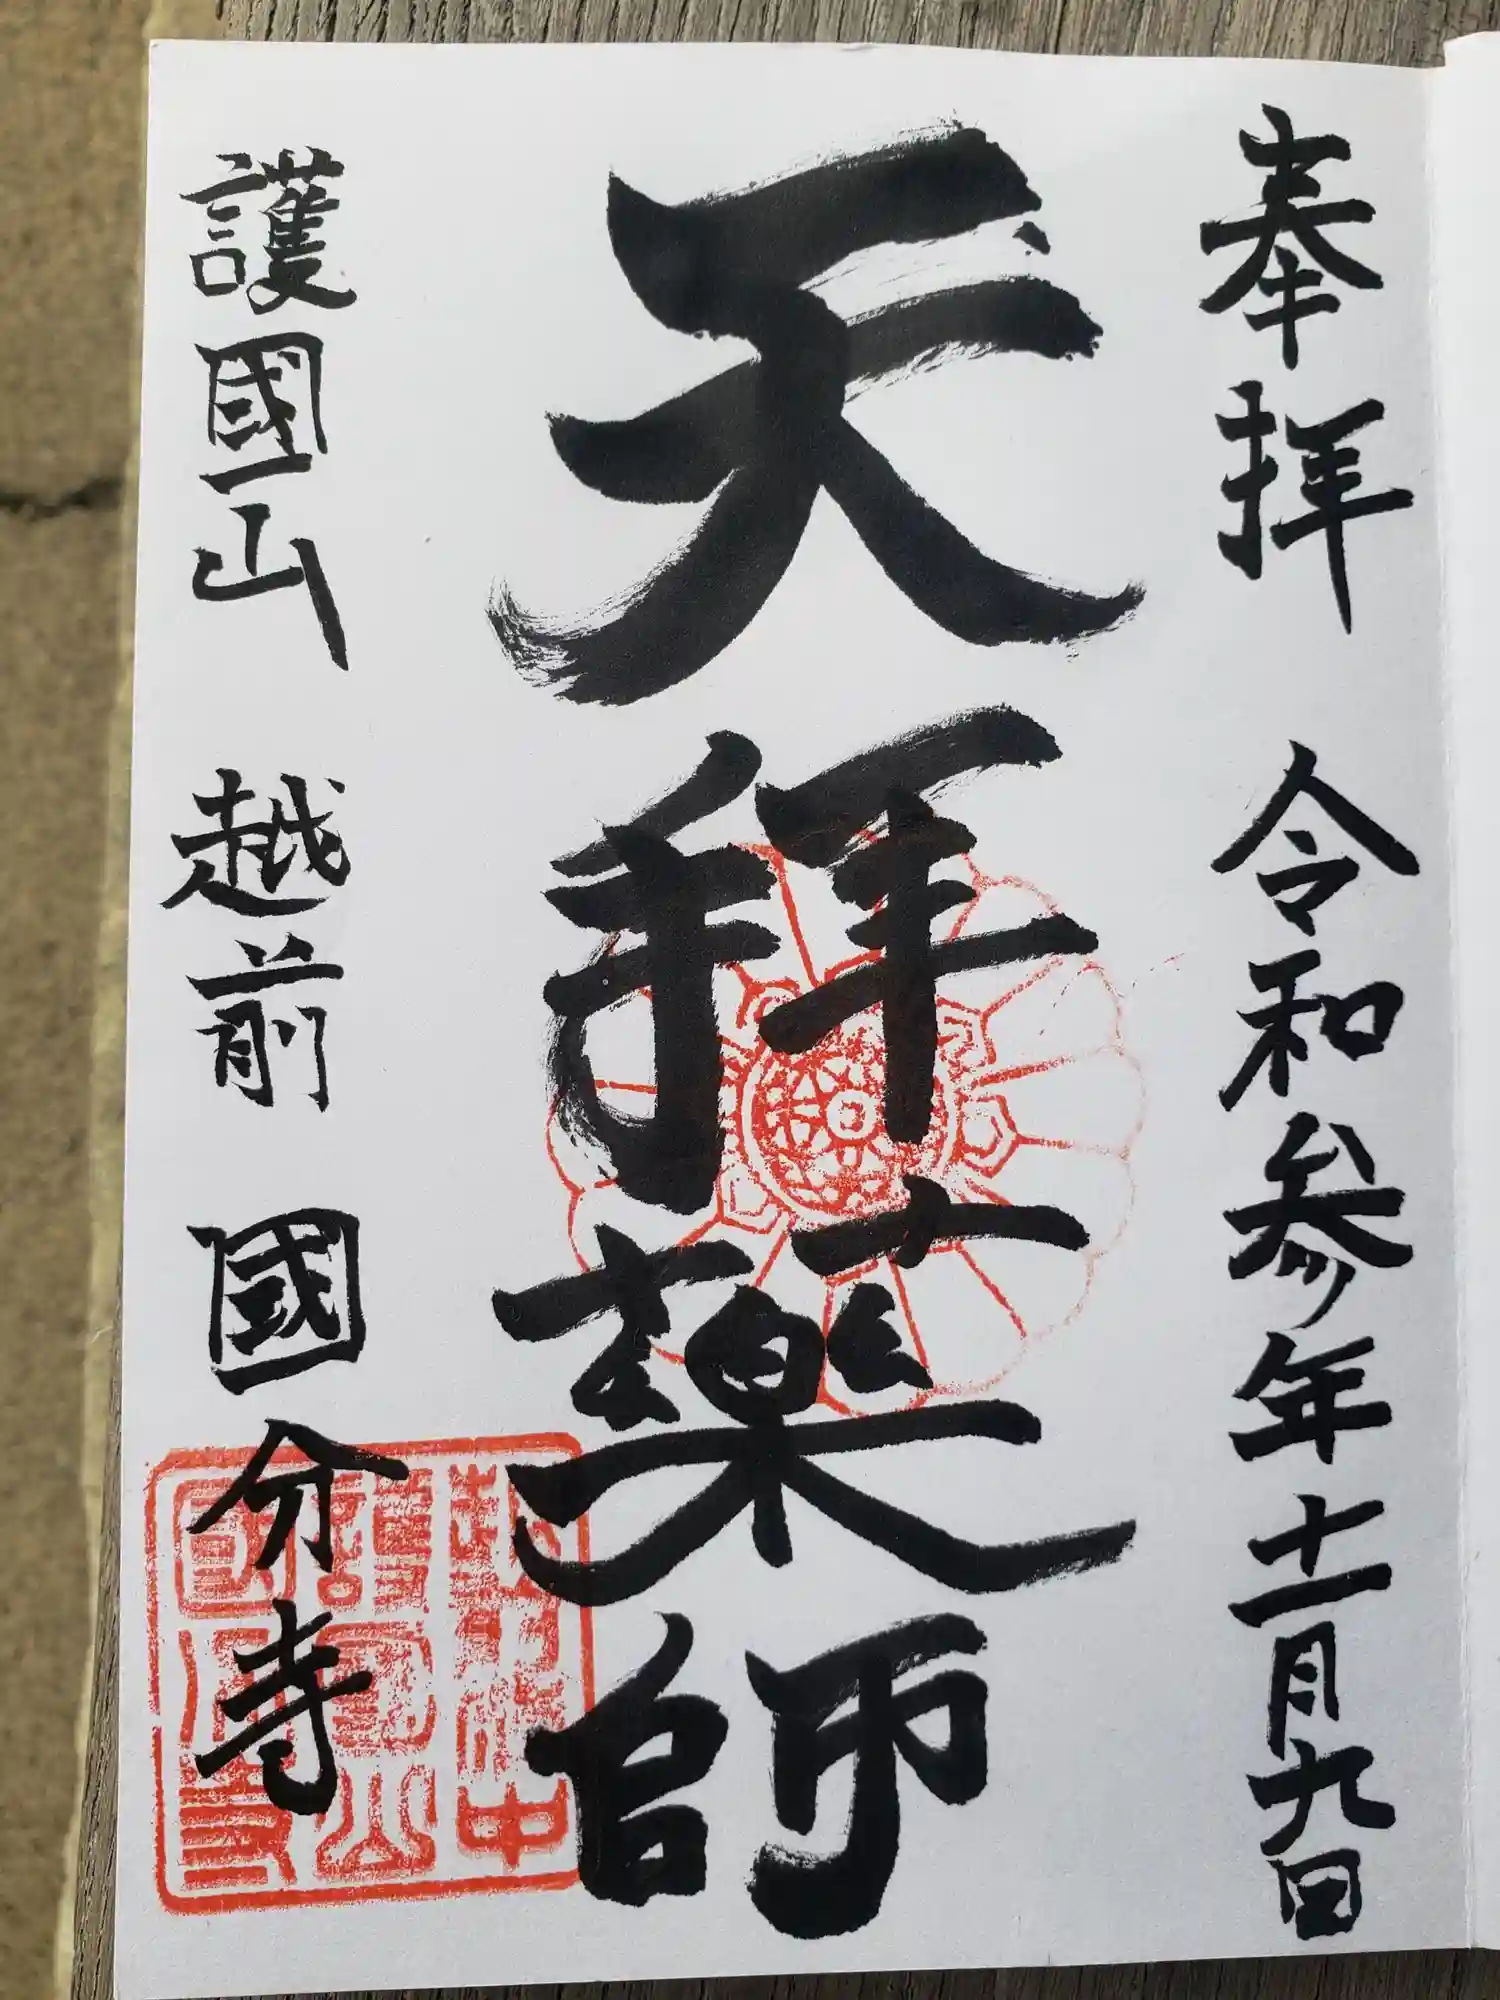 奉拝 令和参年十一月九日
天拝薬師
護國山 越前 國分寺